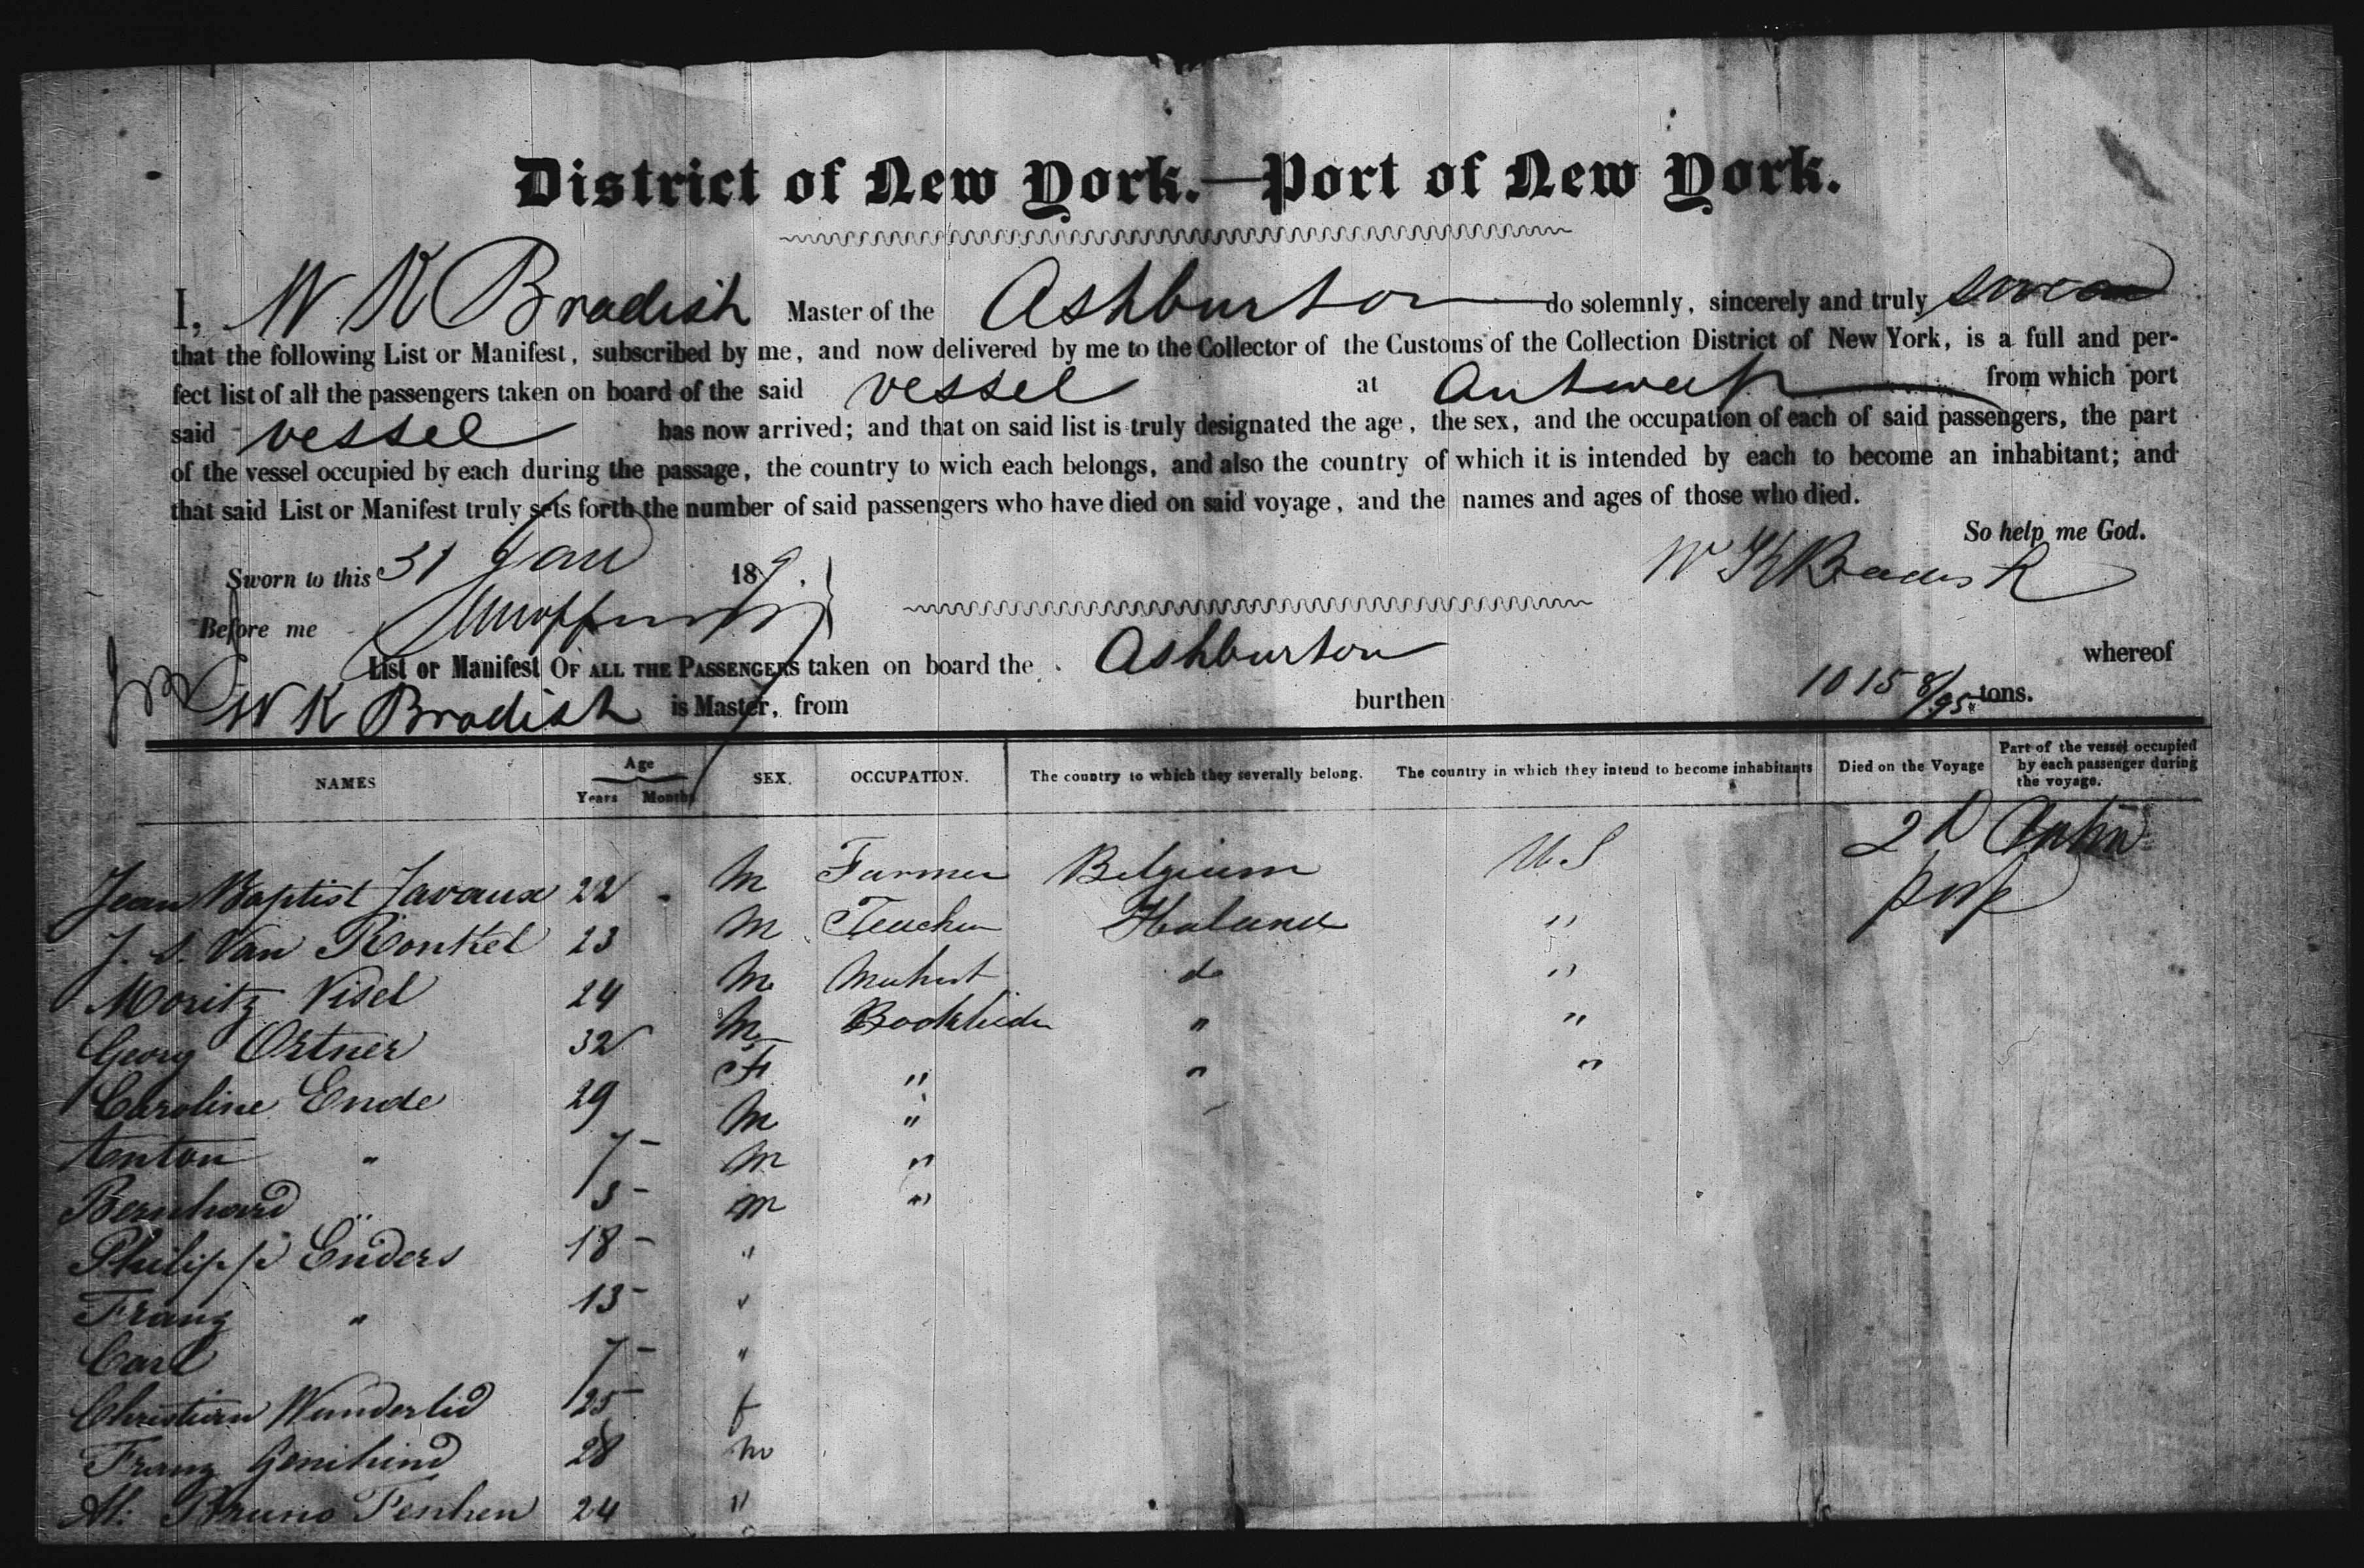 District of New York.—Port of New York.
I, W K Bradish Master of the Ashburton do solemnly, sincerely and truly swear
that the following List or Manifest, subscribed by me, and now delivered by me to the Collector of the Customs of the Collection District of New York, is a full and per-
fect list of all the passengers taken on board of the said vessel at Antwerp from which port
said vessel has now arrived; and that on said list is truly designated the age, the sex, and the occupation of each of said passengers, the part
of the vessel occupied by each during the passage, the country to wich each belongs, and also the country of which it is intended by each to become an inhabitant; and
that said List or Manifest truly sets forth the number of said passengers who have died on said voyage, and the names and ages of those who died.
So help me God.
Sworn to this 31 Jan 18 9. W K Bradish
Before me
List or Manifest OF ALL THE PASSENGERS taken on board the Ashburton whereof
W K Bradish is Master, from burthen 1015 8/95 tons.
NAMES Age Years Months SEX. OCCUPATION. The country to which they severally belong. The country in which they intend to become inhabitants Died on the Voyage Part of the vessel occupied by each passenger during the voyage.
2d Cabin
Jean Baptist Javaux 22 M Farmer Belgium U.S
J. S. Van Ronkel 23 M Teacher Holand "
Moritz Visel 24 M do "
Georg Ortner 32 M " "
Caroline Ende 29 F " " "
Anton " 7 - M "
Bernhard " 3 - M "
Philipp Enders 18 - M "
Franz " 13 - "
Carl 7 - "
Christian 25 f
Franz 28 m
Bruno 24 "